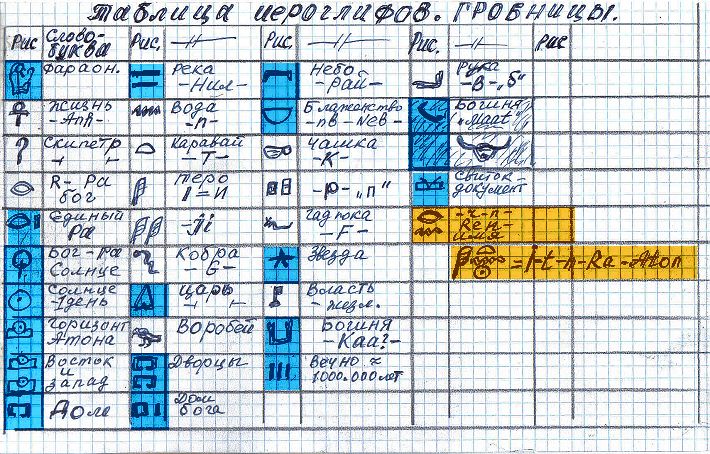 Таблица иероглифов. ГРОБНИЦЫ.
Рис Слово-буква Рис. Рис. Рис. Рис
Фараон. Река -Нил- Небо -Рай- Рука -В- „Б"
Жизнь -Анх- Вода -п- Блаженство -пв- Neb- Богиня „Maat"
Скипетр Каравай -Т- Чашка -К-
R-Ра бог Перо I=И -Р-„п" Свиток-документ
Единый Ра -Ji Гадюка -F- -ч-п- Ren- имия
Бог-Ра Солнце Кобра -G- Звезда =i-t-n-Ra-Aton
Солнце -1день Царь Власть -жезл.
Горизонт Атона Воробей Богиня -Каа?-
Восток и запад Дворцы Вечно ≈ 1000.000лет
Дом Дом бога